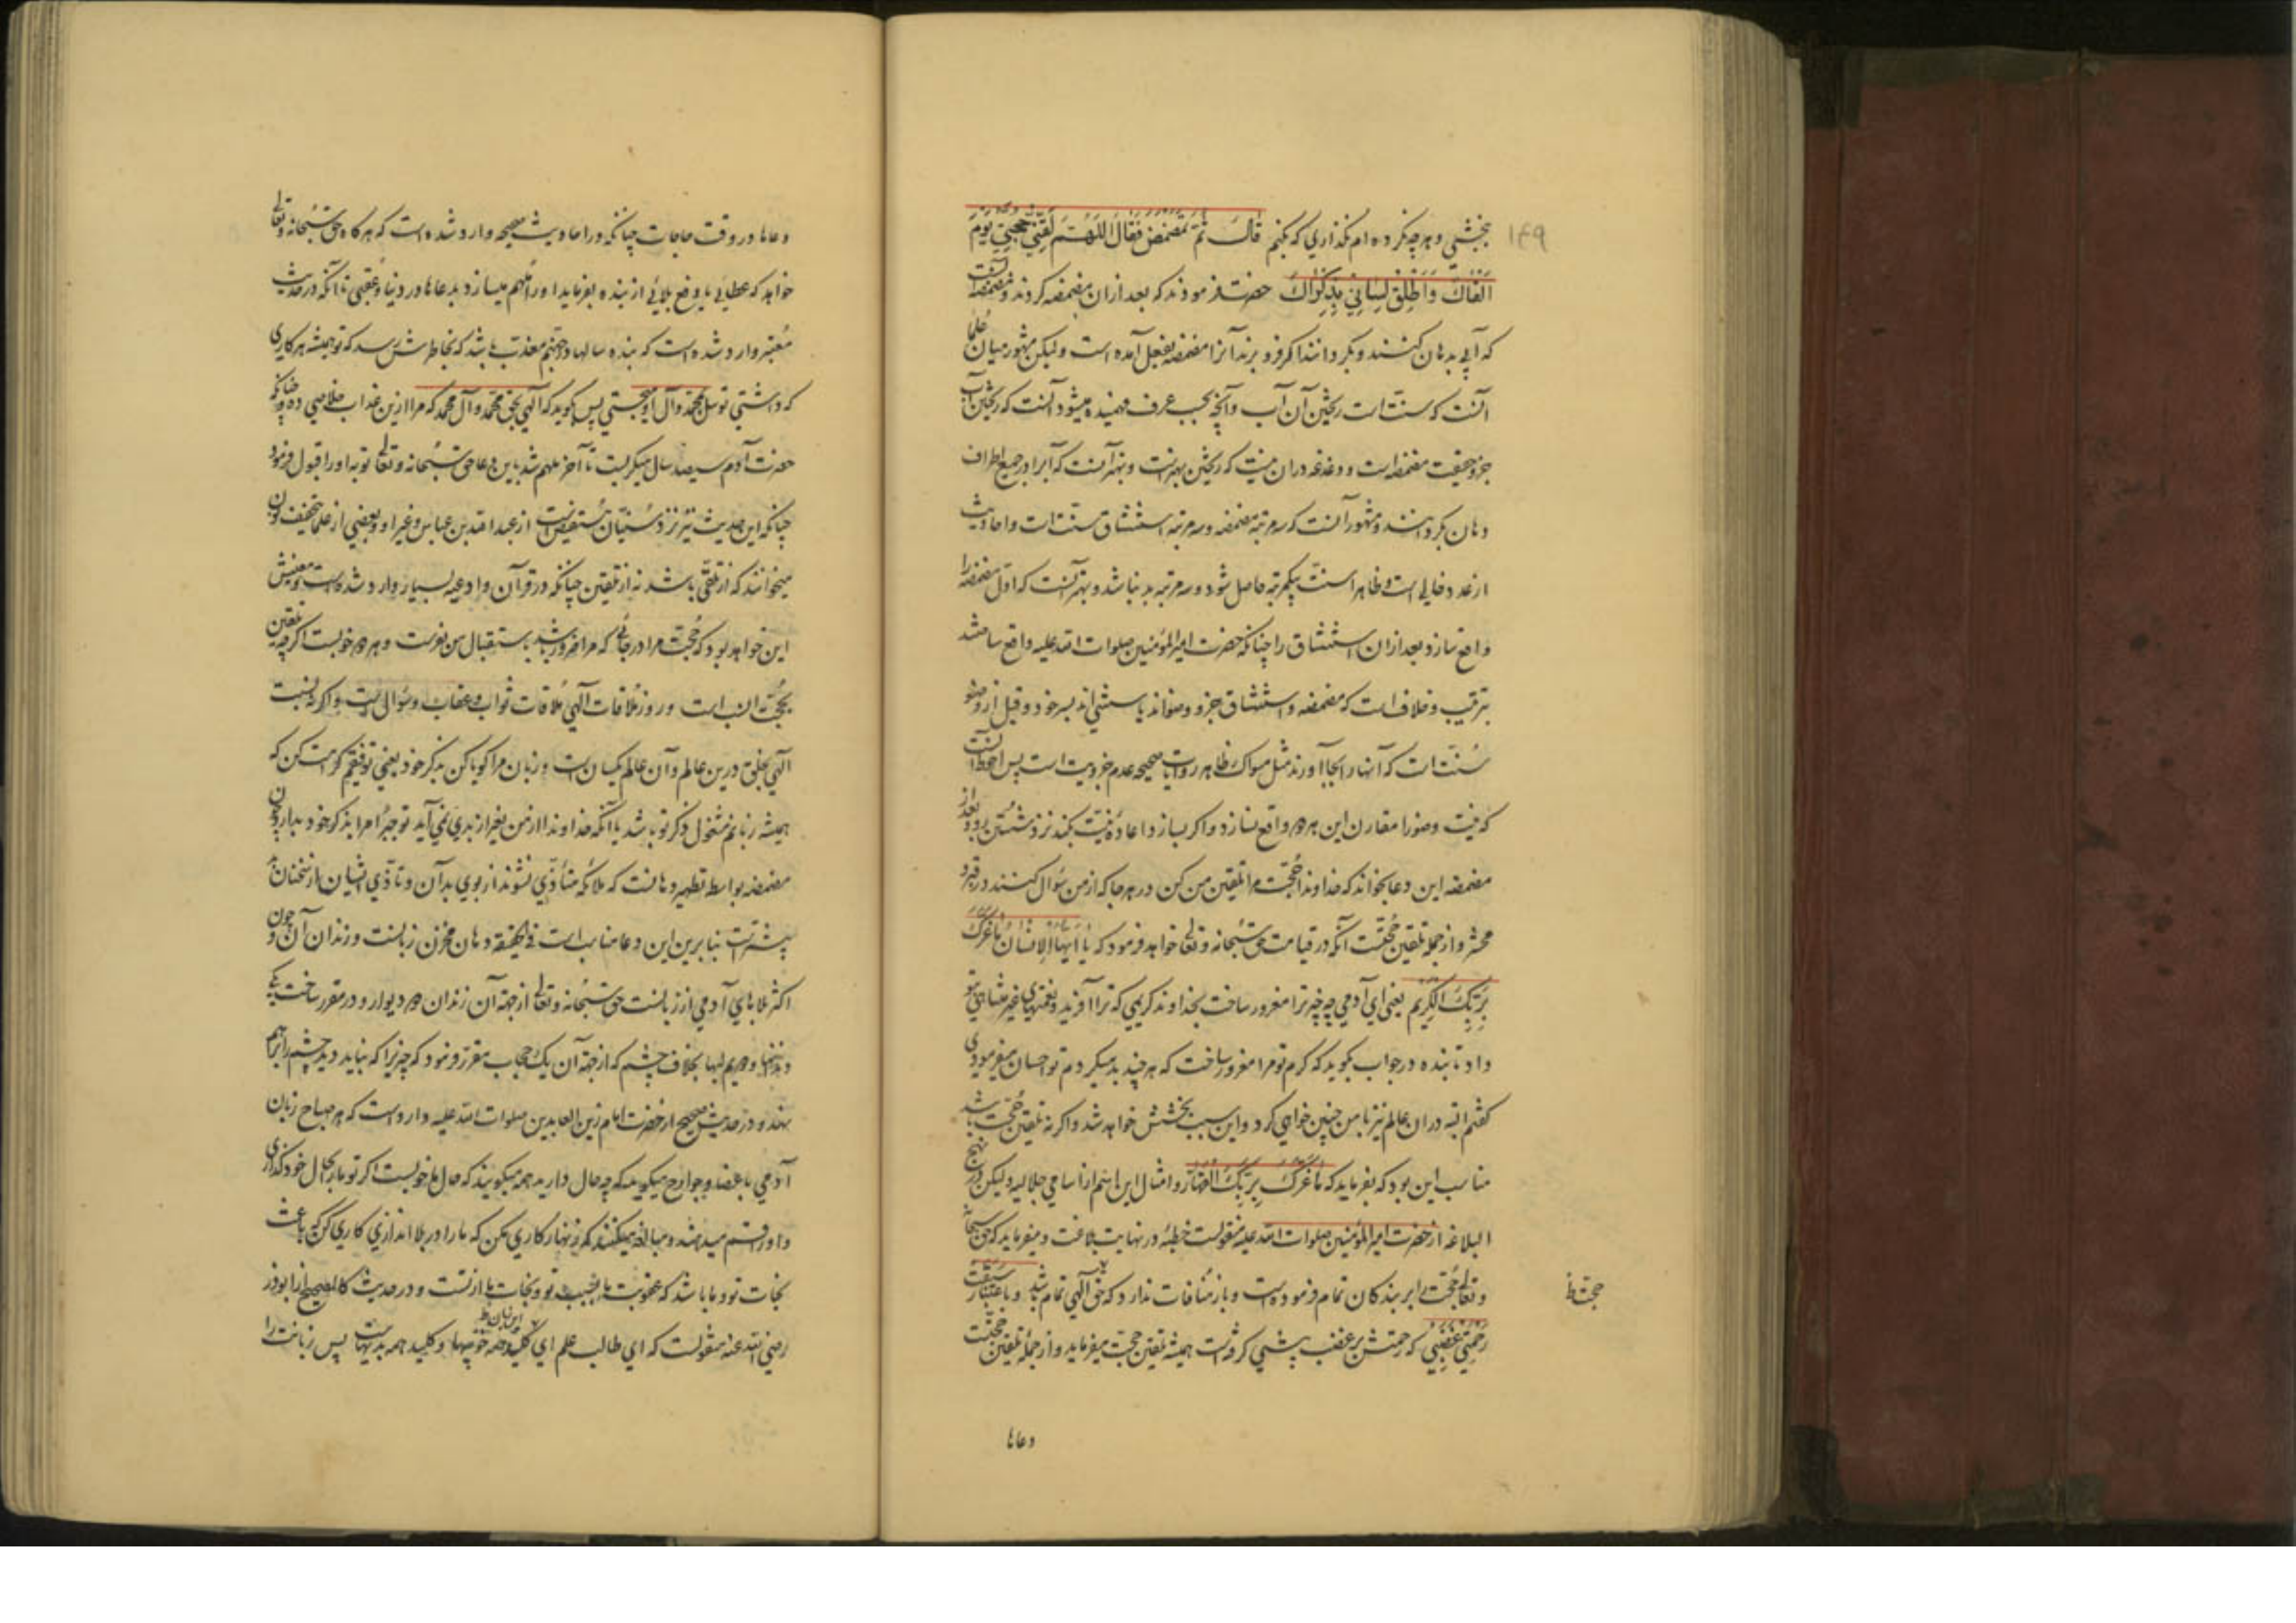 ۱۴۹
بخشی و هر چه نکرده‌ام نگذاری که بکنم قال ثُمَّ تَمَضْمَضَ فَقَالَ اللّٰهُمَّ لَقِّنِّي حُجَّتِي يَوْمَ
اَلْقَاكَ وَاَطْلِقْ لِسَانِي بِذِكْرَاكَ حضرت فرمودند که بعد ازان مضمضه کردند و مضمضه آنست
که آب بدهان کنند و بگردانند اگر فرو برند آنرا مضمضه بفعل آمده است ولیکن مشهور میان علما
آنست که سنت است ریختن آن آب و آنچه بحسب عرف فهمیده میشود آنست که ریختن آب
جزو حقیقت مضمضه است و دغدغه دران نیست که ریختن بهتر است و بهتر آنست که آبرا در جمیع اطراف
دهان بگردانند و مشهور آنست که سه مرتبه مضمضه و سه مرتبه استنشاق سنت است و احادیث
از عدد خالی است و ظاهرا سنت بیکمرتبه حاصل شود و سه مرتبه بد نباشد و بهتر آنست که اول مضمضه را
واقع سازد و بعد ازان استنشاق را چنانکه حضرت امیرالمؤمنین صلوات الله علیه واقع ساختند
بترتیب و خلاف است که مضمضه و استنشاق جزو وضواند یا سنتی‌اند بسر خود و قبل از وضو
سنت است که آنها را بجا آورند مثل مسواک و ظاهر روایات صحیحه عدم جزویت است پس احوط آنست
که نیت وضو را مقارن این هر دو واقع نسازد و اگر بسازد اعاده نیت بکند نزد شستن رو و بعد از
مضمضه این دعا بخواند که خداوندا حجت مرا تلقین من کن در هر جا که از من سؤال کنند در قبر و
محشر و از جمله تلقین حجت است آنکه در قیامت حق سبحانه و تعالی خواهد فرمود که يَا اَيُّهَا الْاِنْسَانُ مَا غَرَّكَ
بِرَبِّكَ الْكَرِيمِ یعنی ای آدمی چه چیز ترا مغرور ساخت بخداوند کریمی که ترا آفرید و نعمتهای غیر متناهی بتو
داد تا بنده در جواب بگوید که کرم تو مرا مغرور ساخت که هر چند بد میکردم تو احسان میفرمودی
گفتم البته دران عالم نیز با من چنین خواهی کرد و این سبب بخشش خواهد شد و اگر نه تلقین حجت باشد
مناسب این بود که بفرماید که مَا غَرَّكَ بِرَبِّكَ الْقَهَّارِ و امثال این اسم از اسامی جلالیه ولیکن در نهج
البلاغه از حضرت امیرالمؤمنین صلوات الله علیه منقولست خطبهٔ در نهایت بلاغت و میفرماید که حق سبحانه
و تعالی حجت را بر بندگان تمام فرموده است و باز منافات ندارد که حق الهی تمام باشد و باعتبار سَبَقَتْ
رَحْمَتِي غَضَبِي که رحمتش بر غضب پیشی گرفته است همیشه تلقین حجت میفرماید و از جمله تلقین حجت است
حجت ظ
دعاها
دعاها در وقت حاجات چنانکه در احادیث صحیحه وارد شده است که هر گاه حق سبحانه و تعالی
خواهد که عطایی یا رفع بلائی از بنده بفرماید او را ملهم میسازد بدعاها در دنیا و عقبی تا آنکه در حدیث
معتبر وارد شده است که بنده سالها در جهنم معذب باشد که بخاطرش رسد که تو همیشه هر کاری
که داشتی توسل بمحمد و آل او میجستی پس بگوید که الهی بحق محمد و آل محمد که مرا ازین عذاب خلاصی ده چنانکه
حضرت آدم سیصد سال میگریست تا آخر ملهم شد باین دعا حق سبحانه و تعالی توبه او را قبول فرمود
چنانکه این حدیث نیز نزد سنیان مستفیض است از عبد الله بن عباس و غیر او و بعضی از علما بتخفیف نون
میخوانند که از تلقی باشد نه از تلقین چنانکه در قرآن و ادعیه بسیار وارد شده است و معنیش
این خواهد بود که حجت مرا در جائی که مرا ضرور باشد باستقبال من بفرست و هر دو خوبست اگر چه تلقین
بحجت انسب است و روز ملاقات الهی ملاقات ثواب و عقاب و سؤال است و اگر نه نسبت
الهی بخلق درین عالم و آن عالم یکسان است و زبان مرا گویا کن بذکر خود یعنی توفیقم کرامت کن که
همیشه زبانم مشغول ذکر تو باشد یا آنکه خداوندا از من بغیر از بدی نمی‌آید تو جبرا مرا بذکر خود بدار چون
مضمضه بواسطه تطهیر دهانست که ملائکه متأذی نشوند از بوی بد آن و تأذی ایشان از سخنان بد
بیشتر است بنابرین این دعا مناسب است فی الحقیقه دهان مخزن زبانست و زندان آن و چون
اکثر بلاهای آدمی از زبانست حق سبحانه و تعالی از جهة آن زندان دو دیوار و در مقرر ساخت یکی
دندانها و دویم لبها بخلاف چشم که از جهة آن یک حجاب مقرر فرمود که چیزیرا که نباید دید چشم را بر هم
نهد و در حدیث صحیح از حضرت امام زین العابدین صلوات الله علیه وارد است که هر صباح زبان
آدمی باعضا و جوارح میگوید که چه حال دارید همه میگویند که حال ما خوبست اگر تو ما را بحال خود گذاری
و او را قسم میدهند و مبالغه میکنند که زنهار کاری مکن که ما را در بلا اندازی کاری کن که باعث
نجات تو و ما باشد که عقوبت ما بسبب تو و نجات ما از تست و در حدیث کالصحیح از ابوذر
رضی الله عنه منقولست که ای طالب علم ای این زبان ظ کلید همه خوبیها و کلید همه بدیهاست پس زبانت را